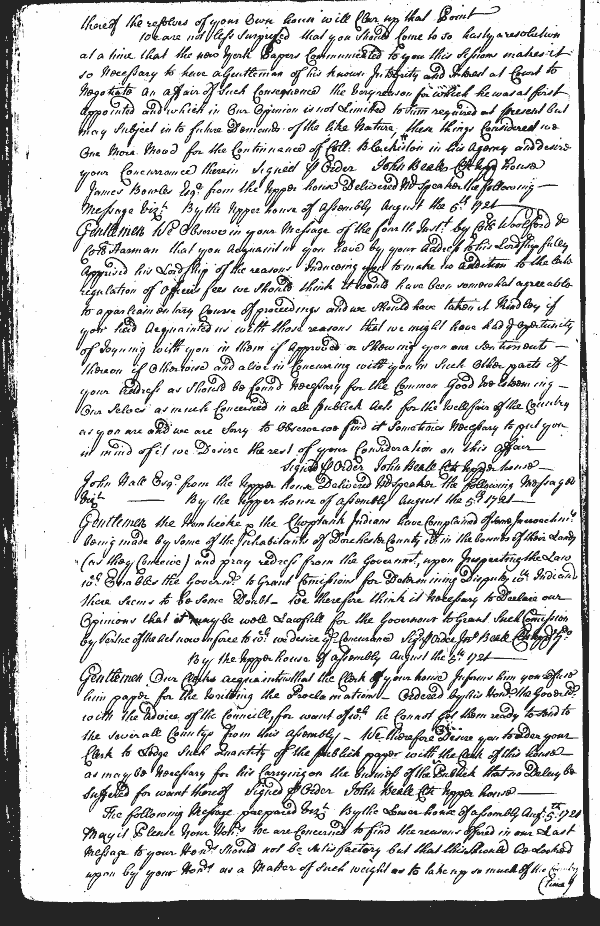 thereof the resolves of your Own house will Clear up that Point
We are not less Surprised that you should Come to so hasty a resolution
at a time that the new York Papers Communicated to you this Sessions makes it
so Necessary to have a Gentleman of his known Integrity and Interest at Court to
Negotiate an affair of Such Consequence the very reason for which he was at first
appointed and which in Our Opinion is not Limitted to him required at present but
may Subject in to future Demands of the like Nature these things Considered we
One More Mood for the Continuance of Coll. Blackiston in his Agency and desire
your Concurrance therein Signed P Order John Beale Clk upp house
James Bowles Esq. from the upper house Delivered Mr Speaker the following
Message Vizt. By the Upper house of Assembly August the 5th 1721
Gentlemen We Observe in your Message of the fourth Inst. by Coll. Woolford &
Coll. Harman that you Acquaint us you have by your Address to his Lordship fully
Apprised his Lordship of the reasons Induceing you to make no addition to the late
regulation of Officers fees we Should think it would have been somewhat agreeable
to a parliamentary Course of proceedings and we Should have taken it Kindley if
you had Acquainted us with those reasons that we might have had Opertunity
of Joyning with you in them if Approved or Shewing you our Sentiments
thereon if Otherwise and also in Concuring with you in Such Other parts of
your Address as Should be found Necessary for the Common Good We Esteeming
Our Selves as much Concerned in all Publick Acts for the Wellfair of the Country
as you are and we are Sorry to Observe we find it Sometimes Necessary to put you
in mind of it we Desire the rest of your Consideration on this affair
Signed P Order John Beale Clk upper house
John Hall Esq. from the Upper house Delivered Mr Speaker the following Messages
Vizt By the Upper house of assembly August the 5th 1721
Gentlemen the Nanticoke & the Choptank Indians have Complained of some Incroachmts.
being made by Some of the Inhabitants of Dorchester County in the bounds of their Lands
(as they Conceive) and pray redress from the Governor, upon Inspecting the Law
wch. Enables the Governr. to Grant Comissions for Determining Disputes with Indians
there Seems to be Some Doubt We therefore think it Necessary to Declare our
Opinions that it may be well Lawfull for the Governour to Grant Such Comission
by Vertue of the act now in force to wch. we desire yr. Concurrance Sign P Order Jno. Beale Clk upp ho.
By the Upper house of assembly August the 5th 1721
Gentlemen Our Clerke acquaints us that the Clerk of your house Informs him you refuse
him paper for the writing the Proclamations Ordered by his Honr. the Governor
with the advice of the Councill, for want of wch. he Cannot Get them ready to send to
the Severall Countys from this Assembly We therefore Desire you to order your
Clerk to Lodge Such Quantity of the publick paper with the Clerk of this house
as may be Necessary for his Carrying on the business of the Publick that no Delay be
Suffered for want thereof Signed P Order John Beale Clk Upper house
The following Message prepared Vizt. By the Lower house of assembly Augt. 5th. 1721
May it Please Your Honrs. We are Concerned to find the reasons offered in our Last
Message to your Honrs. Should not be Satisfactory but that this Should be Looked
upon by your Honrs. as a Matter of Such weight as to take up so much of the Country
(time